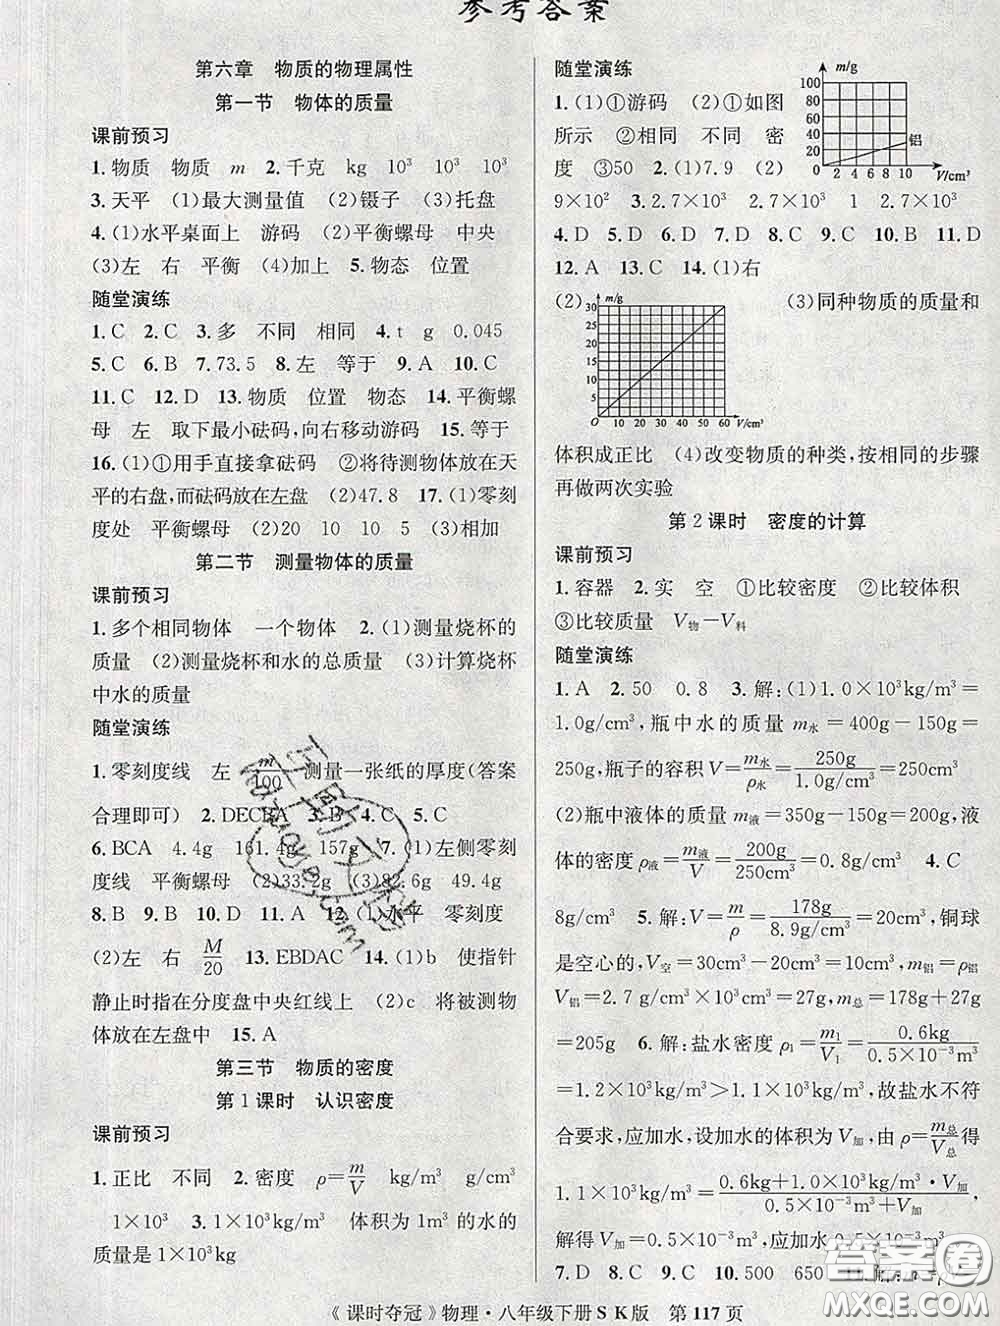 参考答案
第六章 物质的物理属性
第一节 物体的质量
课前预习
1.物质 物质 m 2.千克 kg 10³ 10³ 10³
3.天平 (1)最大测量值 (2)镊子 (3)托盘
4.(1)水平桌面上 游码 (2)平衡螺母 中央
(3)左 右 平衡 (4)加上 5.物态 位置
随堂演练
1.C 2.C 3.多 不同 相同 4.t g 0.045
5.C 6.B 7.73.5 8.左 等于 9.A 10.C
11.C 12.D 13.物质 位置 物态 14.平衡螺
母 左 取下最小砝码,向右移动游码 15.等于
16.(1)①用手直接拿砝码 ②将待测物体放在天
平的右盘,而砝码放在左盘 (2)47.8 17.(1)零刻
度处 平衡螺母 (2)20 10 10 5 (3)相加
第二节 测量物体的质量
课前预习
1.多个相同物体 一个物体 2.(1)测量烧杯的
质量 (2)测量烧杯和水的总质量 (3)计算烧杯
中水的质量
随堂演练
1.零刻度线 左 m/100 测量一张纸的厚度(答案
合理即可) 2.DECBA 3.B 4.C 5.C
6.BCA 4.4g 161.4g 157g 7.(1)左侧零刻
度线 平衡螺母 (2)33.2g (3)82.6g 49.4g
8.B 9.B 10.D 11.A 12.(1)水平 零刻度
(2)左 右 M/20 13.EBDAC 14.(1)b 使指针
静止时指在分度盘中央红线上 (2)c 将被测物
体放在左盘中 15.A
第三节 物质的密度
第1课时 认识密度
课前预习
1.正比 不同 2.密度 ρ=m/V kg/m³ g/cm³
1×10³ 3.1×10³kg/m³ 体积为1m³的水的
质量是1×10³kg
随堂演练
1.(1)①游码 (2)①如图
所示 ②相同 不同 密
度 ③50 2.(1)7.9 (2)
m/g
100
80
60
40
20
铝
0 2 4 6 8 10 V/cm³
9×10² 3.2.7×10³ 2.7×10³ 1 2.7×10³
4.D 5.D 6.D 7.D 8.D 9.C 10.B 11.D
12.A 13.C 14.(1)右
(2)
m/g
30
25
20
15
10
5
O 10 20 30 40 50 60 V/cm³
(3)同种物质的质量和
体积成正比 (4)改变物质的种类,按相同的步骤
再做两次实验
第2课时 密度的计算
课前预习
1.容器 2.实 空 ①比较密度 ②比较体积
③比较质量 V物−V料
随堂演练
1.A 2.50 0.8 3.解:(1)1.0×10³kg/m³=
1.0g/cm³,瓶中水的质量 m水=400g−150g=
250g,瓶子的容积V=m水/ρ水=250g/1.0g/cm³=250cm³
(2)瓶中液体的质量m液=350g−150g=200g,液
体的密度ρ液=m液/V=200g/250cm³=0.8g/cm³ 4.C
8g/cm³ 5.解:V=m/ρ=178g/8.9g/cm³=20cm³,铜球
是空心的,V空=30cm³−20cm³=10cm³,m铝=ρ铝
V铝=2.7 g/cm³×10cm³=27g,m总=178g+27g
=205g 6.解:盐水密度ρ₁=m₁/V₁=0.6kg/0.5×10⁻³m³
=1.2×10³kg/m³>1.1×10³kg/m³,故盐水不符
合要求,应加水,设加水的体积为V加,由ρ=m总/V总得
1.1×10³kg/m³=0.6kg+1.0×10³kg/m³·V加/0.5×10⁻³m³+V加,
解得V加=0.5×10⁻³m³,应加水0.5×10⁻³m³
7.D 8.C 9.C 10.500 650
《课时夺冠》物理·八年级下册SK版 第117页
答案圈
MXQE.COM